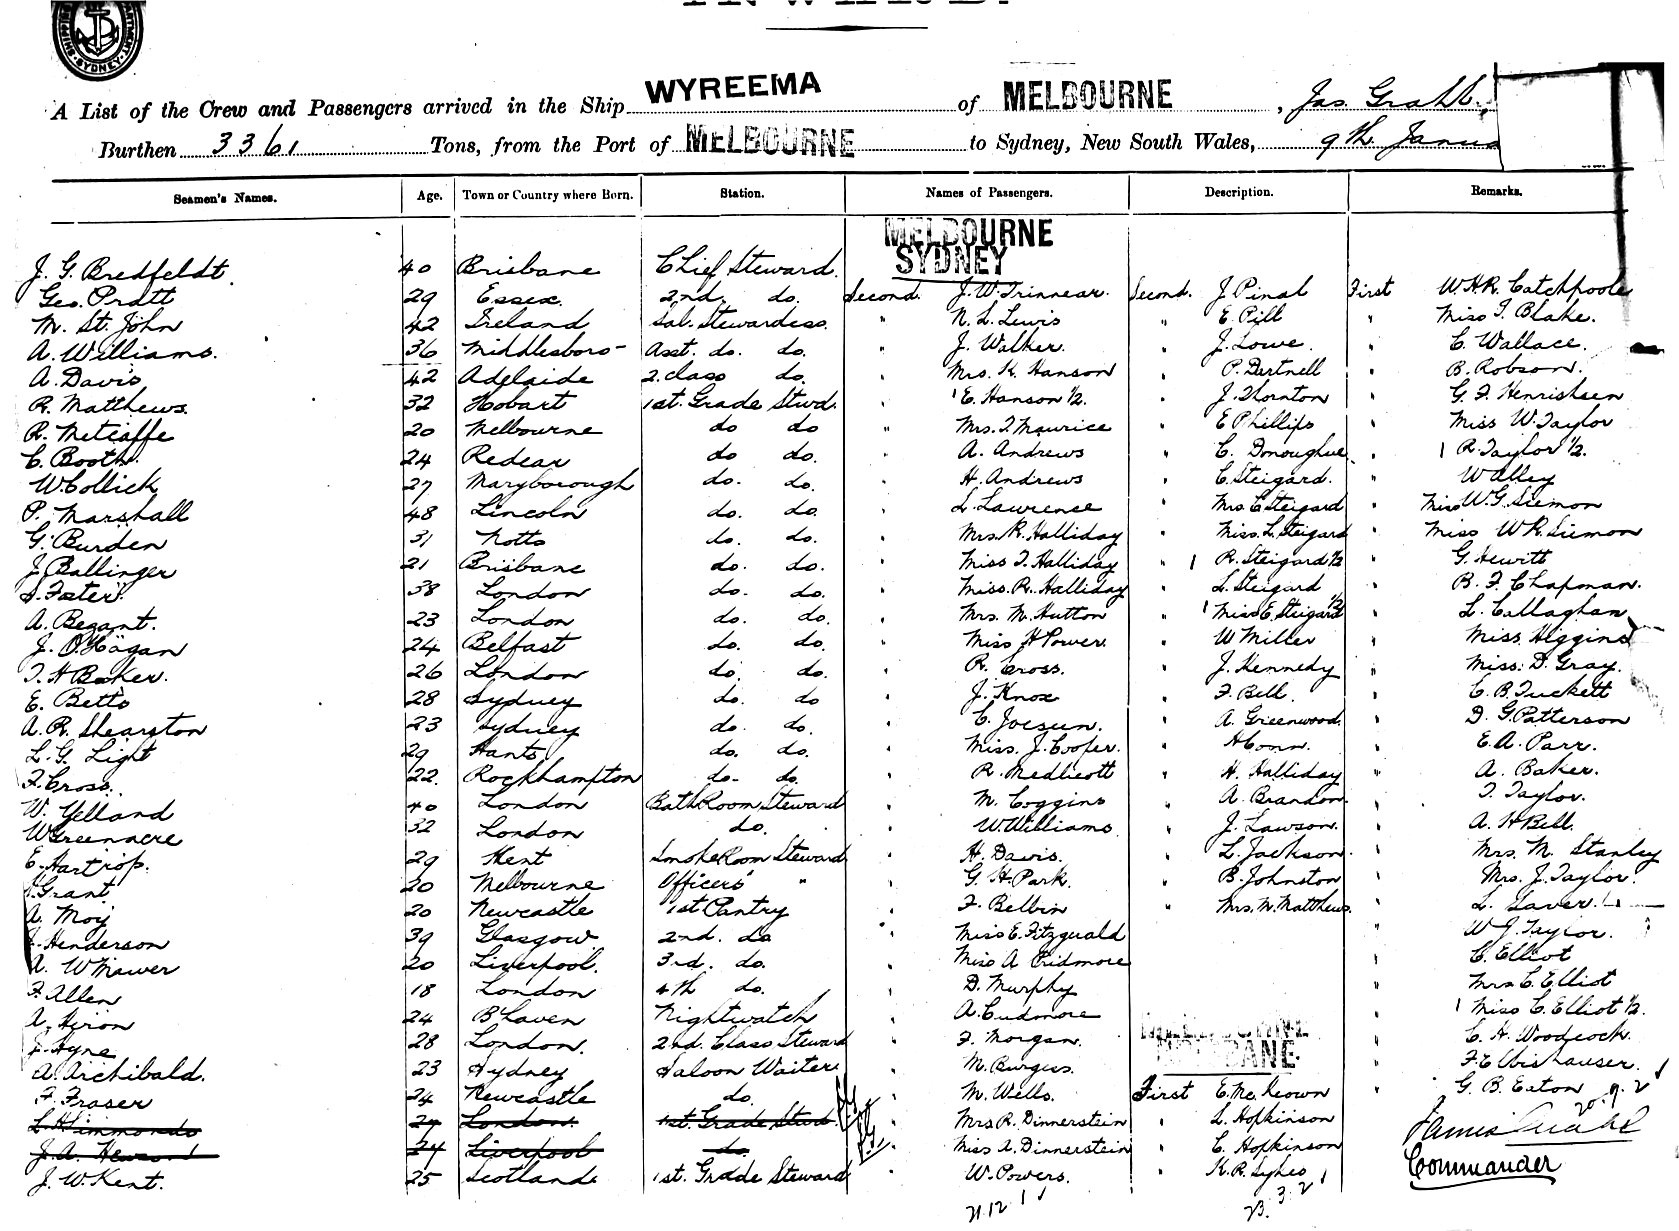 SYDNEY
A List of the Crew and Passengers arrived in the Ship WYREEMA of MELBOURNE, Jas. Grahl,
Burthen 3361 Tons, from the Port of MELBOURNE to Sydney, New South Wales, 9th
Seamen's Names. Age. Town or Country where Born. Station. Names of Passengers. Description. Remarks.
MELBOURNE
SYDNEY
J. G. Bredfeldt. 40 Brisbane Chief Steward.
Geo. Pratt 29 Essex. 2nd. do. Second. J. W. Trinnear. Second. J Pinal First W. H. R. Catchpoole
M. St. John 42 Ireland Sal. Stewardess. " N. L. Lewis " E. Pill " Miss I. Blake.
A. Williams. 36 Middlesboro- Asst. do. do. " J. Walker. " J. Lowe. " C. Wallace.
A. Davis 42 Adelaide 2. class do. " Mrs. K. Hanson " P. Dartnell " B. Robson.
R. Matthews. 32 Hobart 1st. Grade Stwd. " 1 E. Hanson 1/2. " J. Thornton " G. F. Henriksen
R. Metcalfe 20 Melbourne do do " Mrs. I. Maurice " E Phillips " Miss W. Taylor
C. Booth. 24 Redcar do do. " A. Andrews " C. Donoughue. " 1 R. Taylor 1/2.
W. Collick 27 Maryborough do. do. " H. Andrews " C. Steigard. " W Alley
P. Marshall 48 Lincoln do. do. " L. Lawrence " Mrs C Steigard " Miss W. G. Siemon
G. Burden 31 Notts do. do. " Mrs. R. Halliday " Miss. L. Steigard " Miss W R. Siemon
J. Ballinger 21 Brisbane do. do. " Miss I. Halliday " 1 R. Steigard 1/2 " G. Hewitt
S. Foster. 38 London do. do. " Miss. R. Halliday " L. Steigard " B. F. Chapman.
A. Begant. 23 London do. do. " Mrs. M. Hutton " 1 Miss E. Steigard 1/2 " L. Callaghan
J. O'Hagan 24 Belfast do. do. " Miss H Power. " W Miller " Miss. Higgins
T. H Baker. 26 London do. do. " R. Cross. " J. Kennedy " Miss. D. Gray.
E. Betts 28 Sydney do. do " J. Knox " F. Bell. " C. B. Tuckett
A. R. Shearston 23 Sydney do. do. " C. Joesun. " A. Greenwood. " D. G. Patterson
L. G. Light 29 Hants. do. do. " Miss. J. Cooper. " H Conn. " E. A. Parr.
F. Cross. 22. Rockhampton do. do. " R. Medlicott " H. Halliday " A. Baker.
W. Yelland 40 London Bath Room Steward " M. Coggins " A. Brandon. " T. Taylor.
W Greenacre 32 London do. " W Williams " J. Lawson. " A. H Bell.
E. Hartrop. 29 Kent Smoke Room Steward " H. Davis. " L. Jackson. " Mrs. M. Stanley
Grant. 20 Melbourne Officers' " " G. H. Park. " B. Johnston " Mrs. J. Taylor.
A. Moy 20 Newcastle 1st Pantry " F. Belbin " Mrs. W. Matthews. " L. Laver.
Henderson 39 Glasgow. 2nd. do " Miss E. Fitzgerald " W J. Taylor.
A. W Mawer 20 Liverpool. 3rd. do. " Miss A Pridmore " C. Elliot
F. Allen 18 London 4th do. " D. Murphy " Mrs C. Elliot
A. Hiron 24 B'haven Nightwatch " A. Cudmore " 1 Miss C. Elliot 1/2.
J. Hyne 28 London. 2nd. Class Steward " F. Morgan. MELBOURNE " C. H. Woodcock.
A. Archibald. 23 Sydney Saloon Waiter " M. Burgess. BRISBANE " F. C
F. Fraser 24 Newcastle do. " M. Wells. First E. McKeown " G. B. Eaton
L. H Simmonds 29 London. 1st. Grade Stwd. " Mrs R. Dinnerstein " L. Hopkinson 20. 9. 2 1
J. A. 24 Liverpool do. " Miss A. Dinnerstein " C. Hopkinson James Grahl
J. W. Kent. 25 Scotland. 1st. Grade Steward " W. Powers. " K. R. Sykes Commander
21. 12 1 1 23. 3. 2 1